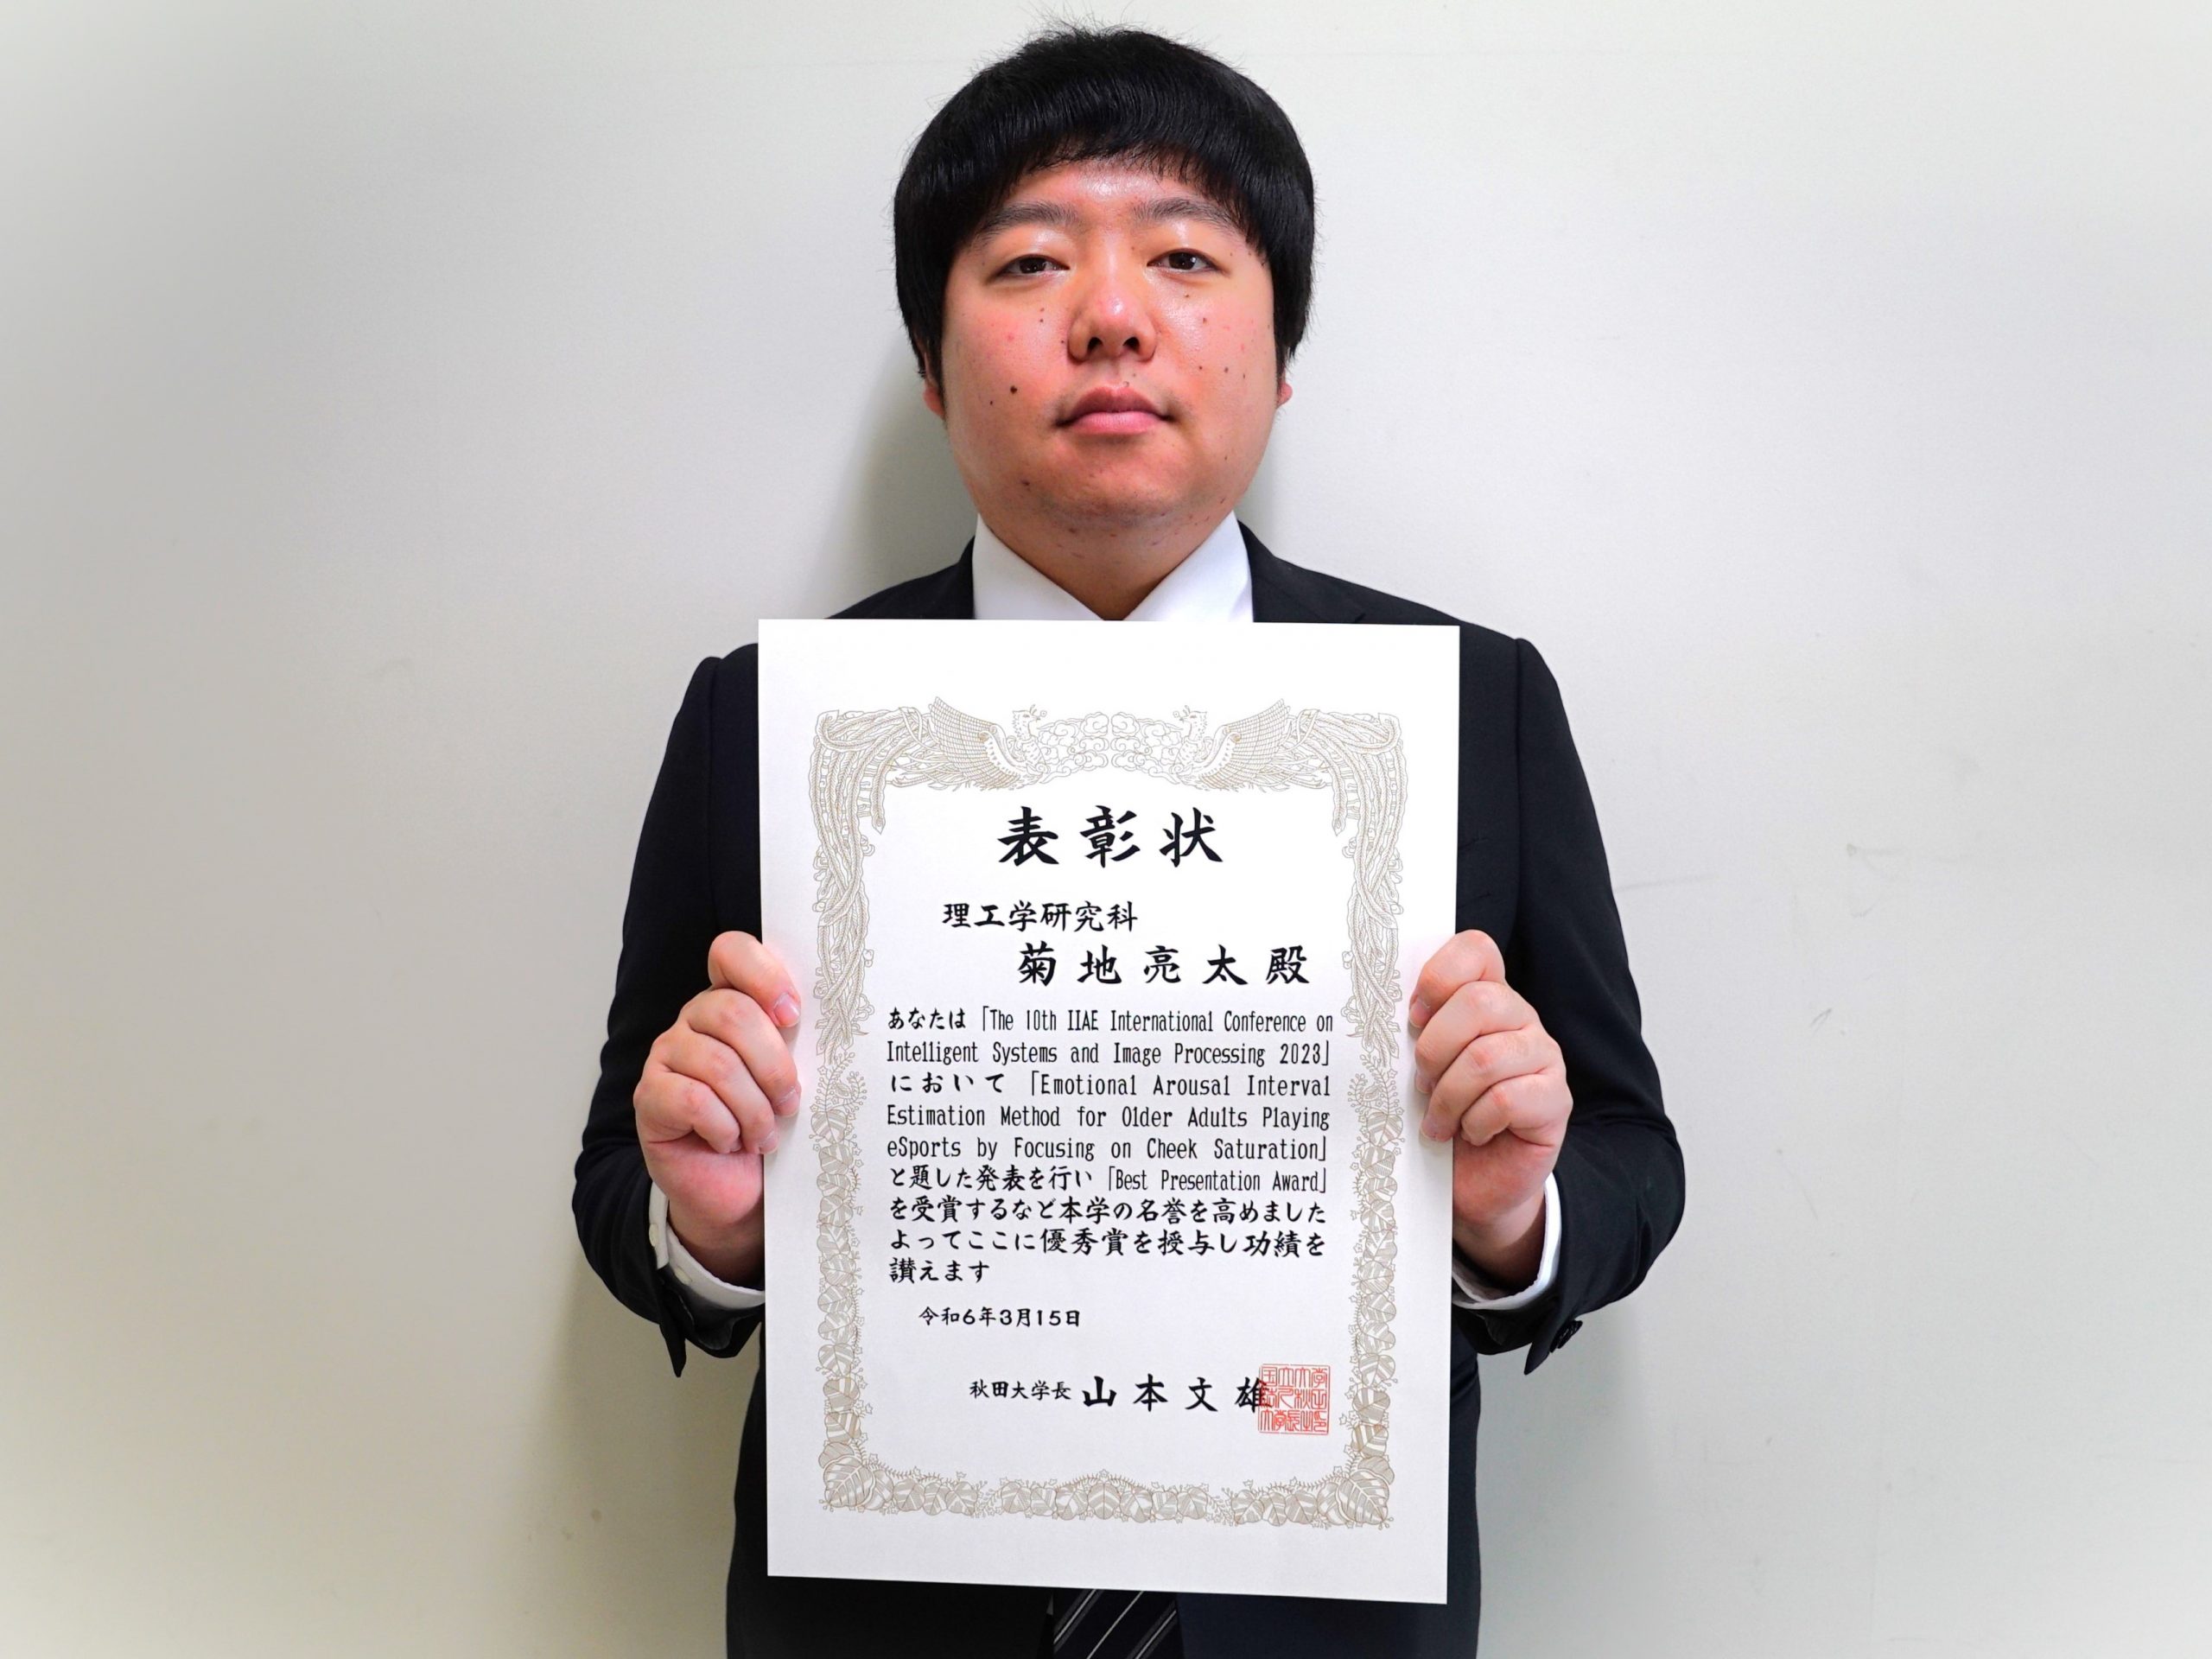 表彰状
理工学研究科
菊地亮太殿
あなたは「The 10th IIAE International Conference on
Intelligent Systems and Image Processing 2023」
において「Emotional Arousal Interval
Estimation Method for Older Adults Playing
eSports by Focusing on Cheek Saturation」
と題した発表を行い「Best Presentation Award」
を受賞するなど本学の名誉を高めました
よってここに優秀賞を授与し功績を
讃えます
令和6年3月15日
秋田大学長 山本文雄